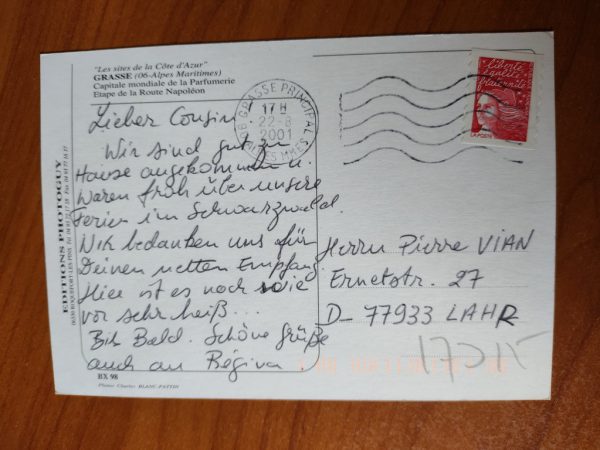 "Les sites de la Côte d'Azur"
GRASSE (06-Alpes Maritimes)
Capitale mondiale de la Parfumerie
Etape de la Route Napoléon
Lieber Cousin
Wir sind gut zu
Hause angekommen u.
Waren froh über unsere
Ferien im Schwarzwald.
Wir bedanken uns für
Deinen netten Empfang
Hier ist es noch wie
vor sehr heiß...
Bis Bald. Schöne Grüße
auch an Régina
BX 98
Photos Charles BLANC-PATTIN
EDITIONS PHOTOGUY
06 GRASSE PRINCIPAL
17 H
22-8
2001
ALPES MMES
liberté
égalité
fraternité
LA POSTE
Herrn Pierre VIAN
Ernetstr. 27
D-77933 LAHR